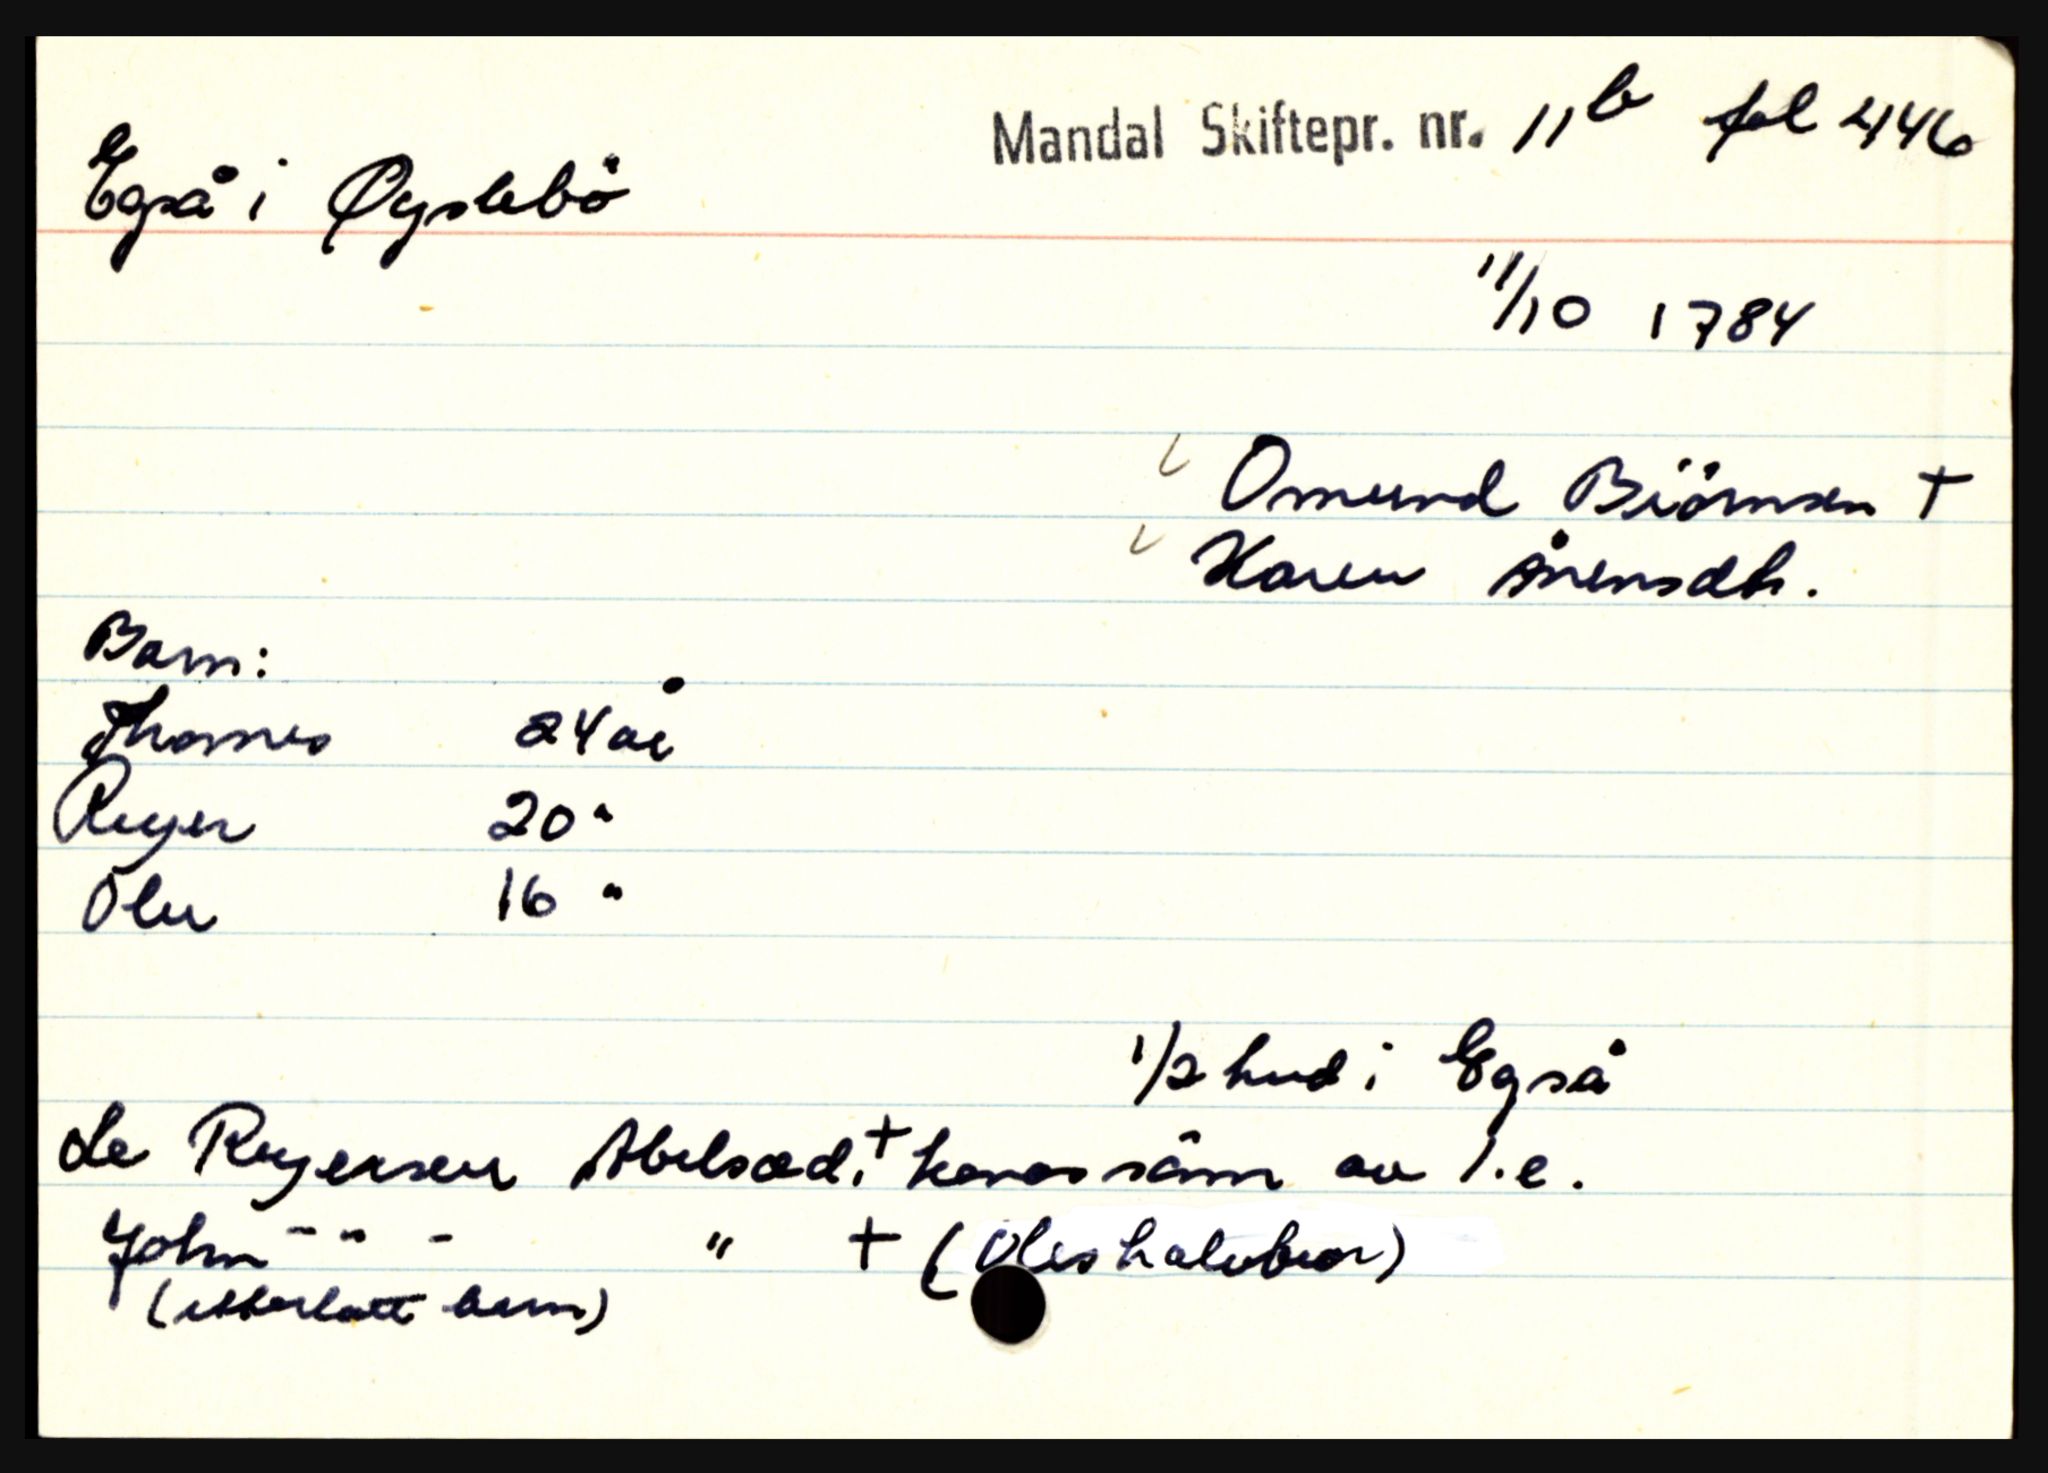 Mandal Skiftepr. nr. 11b fol 446
Egså i Øyslebö
11/10 1784
Omund Biörnsen +
Karen Ånensdtr.
Barn:
Thomes 24 år
Reyer 20 "
Olen 16 "
1/2 hud i Egså
Reyersen Abelsæd. + konas sönn av 1.e.
John - " - " + (Oles halvbror)
(etterlatt barn)